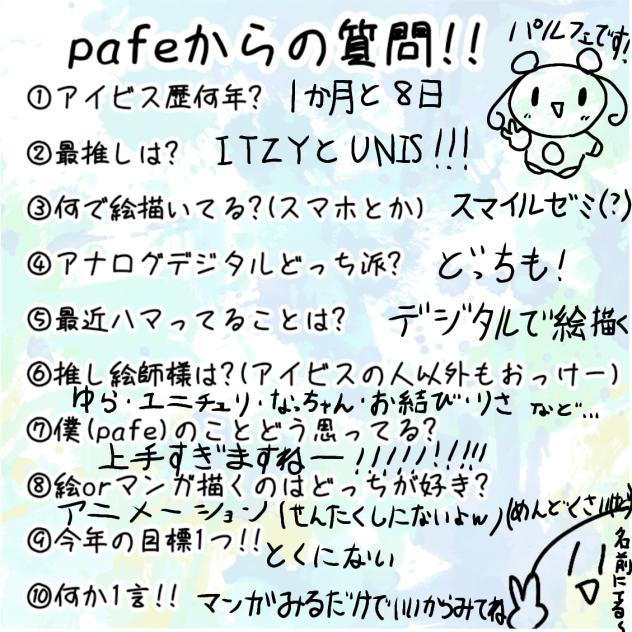 pafeからの質問!!
パルフェです!
①アイビス歴何年? 1か月と8日
②最推しは? ITZYとUNIS!!!
③何で絵描いてる?(スマホとか) スマイルゼミ(?)
④アナログデジタルどっち派? どっちも!
⑤最近ハマってることは? デジタルで絵描く
⑥推し絵師様は?(アイビスの人以外もおっけー)
ゆら・ユニチェリ・なっちゃん・お結び・りさ など...
⑦僕(pafe)のことどう思ってる?
上手すぎますねー!!!!!!!!!
⑧絵orマンガ描くのはどっちが好き?
アニメーション(せんたくしにないよw)(めんどくさい
⑨今年の目標1つ!! とくにない
⑩何か1言!! マンガみるだけでいいからみてね
名前にてる〜